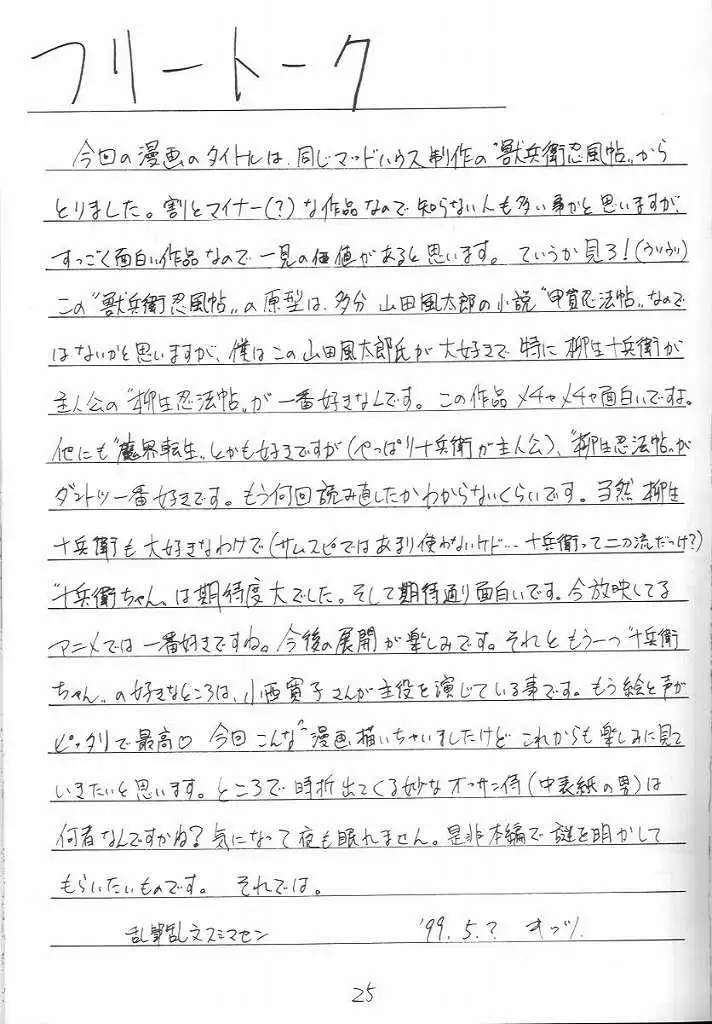 フリートーク
今回の漫画のタイトルは、同じマッドハウス制作の"獣兵衛忍風帖„から
とりました。割とマイナー(?)な作品なので知らない人も多い事かと思いますが、
すっごく面白い作品なので一見の価値があると思います。ていうか見ろ!(ウリウリ)
この"獣兵衛忍風帖„の原型は、多分山田風太郎の小説"甲賀忍法帖„なので
はないかと思いますが、僕はこの山田風太郎氏が大好きで特に柳生十兵衛が
主人公の"柳生忍法帖„が一番好きなんです。この作品メチャメチャ面白いですよ。
他にも"魔界転生„とかも好きですが(やっぱり十兵衛が主人公)、"柳生忍法帖„が
ダントツ一番好きです。もう何回読み直したかわからないくらいです。当然柳生
十兵衛も大好きなわけで(サムスピではあまり使わないケド…十兵衛って二刀流だっけ?)
"十兵衛ちゃん„は期待度大でした。そして期待通り面白いです。今放映してる
アニメでは一番好きですね。今後の展開が楽しみです。それともう一つ"十兵衛
ちゃん„の好きなところは、小西寛子さんが主役を演じている事です。もう絵と声が
ピッタリで最高♡ 今回こんな漫画描いちゃいましたけどこれからも楽しみに見て
いきたいと思います。ところで時折出てくる妙なオッサン侍(中表紙の男)は
何者なんですかね?気になって夜も眠れません。是非本編で謎を明かして
もらいたいものです。それでは。
乱筆乱文スミマセン '99.5.?
25